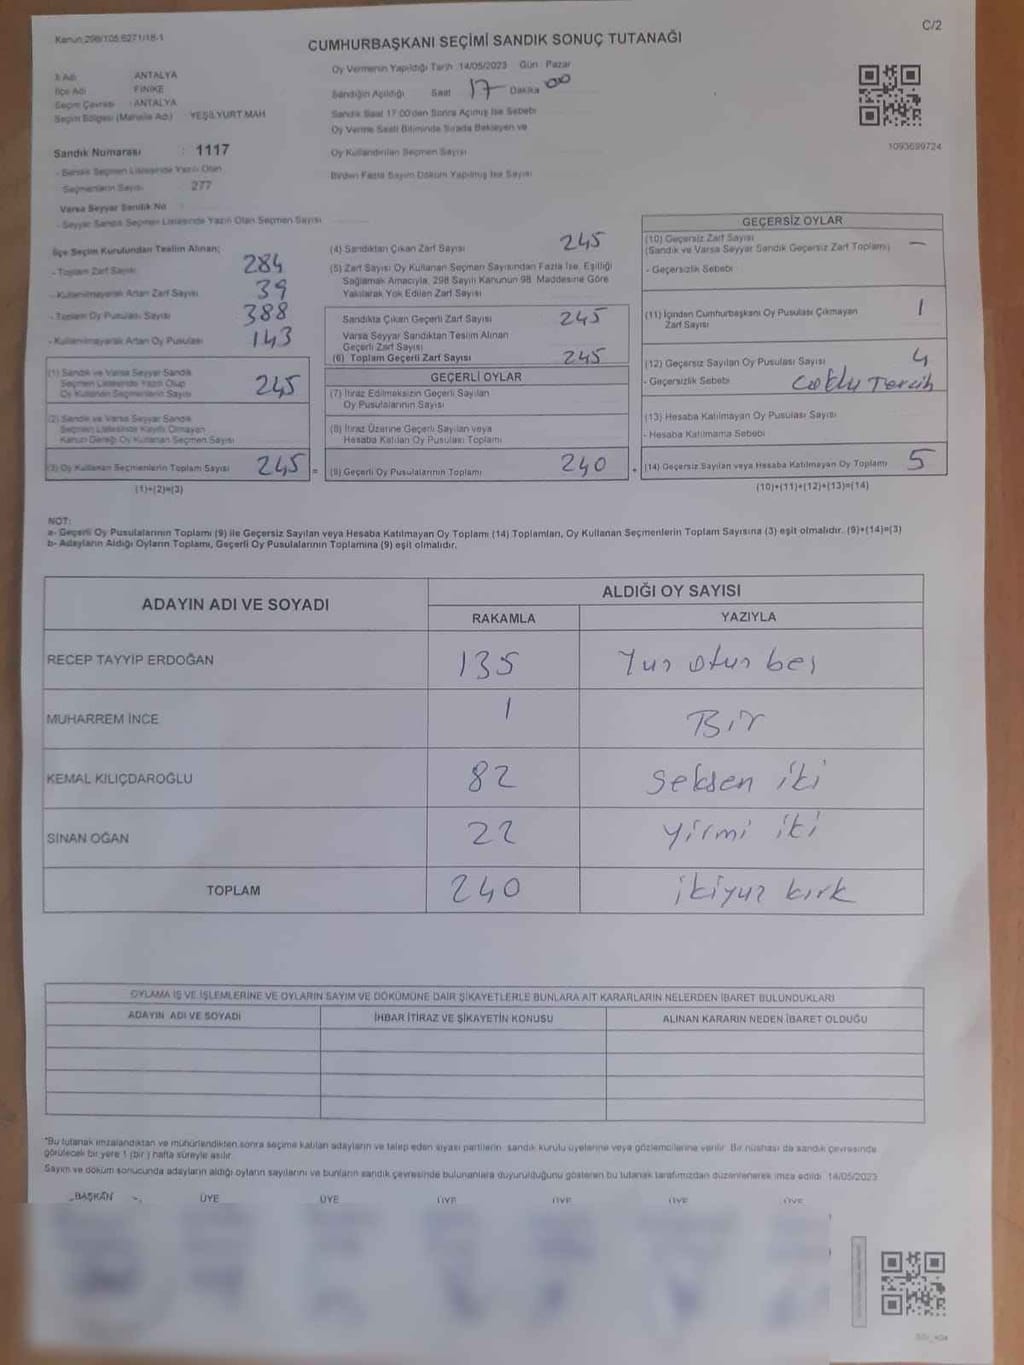 Kanun:298/105,6271/18-1
C/2
CUMHURBAŞKANI SEÇİMİ SANDIK SONUÇ TUTANAĞI
İl Adı : ANTALYA
İlçe Adı : FİNİKE
Seçim Çevresi : ANTALYA
Seçim Bölgesi (Mahalle Adı) : YEŞİLYURT MAH
Sandık Numarası : 1117
- Sandık Seçmen Listesinde Yazılı Olan
Seçmenlerin Sayısı : 277
Varsa Seyyar Sandık No
- Seyyar Sandık Seçmen Listesinde Yazılı Olan Seçmen Sayısı
Oy Vermenin Yapıldığı Tarih :14/05/2023 Gün : Pazar
Sandığın Açıldığı Saat 17 Dakika 00
Sandık Saat 17:00'den Sonra Açılmış İse Sebebi
Oy Verme Saati Bitiminde Sırada Bekleyen ve
Oy Kullandırılan Seçmen Sayısı
Birden Fazla Sayım Döküm Yapılmış İse Sayısı
1093699724
İlçe Seçim Kurulundan Teslim Alınan;
- Toplam Zarf Sayısı 284
- Kullanılmayarak Artan Zarf Sayısı 39
- Toplam Oy Pusulası Sayısı 388
- Kullanılmayarak Artan Oy Pusulası 143
(1) Sandık ve Varsa Seyyar Sandık
Seçmen Listesinde Yazılı Olup
Oy Kullanan Seçmenlerin Sayısı 245
(2) Sandık ve Varsa Seyyar Sandık
Seçmen Listesinde Kayıtlı Olmayan
Kanun Gereği Oy Kullanan Seçmen Sayısı
(3) Oy Kullanan Seçmenlerin Toplam Sayısı 245 =
(1)+(2)=(3)
(4) Sandıktan Çıkan Zarf Sayısı 245
(5) Zarf Sayısı Oy Kullanan Seçmen Sayısından Fazla İse, Eşitliği
Sağlamak Amacıyla, 298 Sayılı Kanunun 98. Maddesine Göre
Yakılarak Yok Edilen Zarf Sayısı
Sandıkta Çıkan Geçerli Zarf Sayısı 245
Varsa Seyyar Sandıktan Teslim Alınan
Geçerli Zarf Sayısı
(6) Toplam Geçerli Zarf Sayısı 245
GEÇERLİ OYLAR
(7) İtiraz Edilmeksizin Geçerli Sayılan
Oy Pusulalarının Sayısı
(8) İtiraz Üzerine Geçerli Sayılan veya
Hesaba Katılan Oy Pusulası Toplamı
(9) Geçerli Oy Pusulalarının Toplamı 240 +
GEÇERSİZ OYLAR
(10) Geçersiz Zarf Sayısı
(Sandık ve Varsa Seyyar Sandık Geçersiz Zarf Toplamı) —
- Geçersizlik Sebebi
(11) İçinden Cumhurbaşkanı Oy Pusulası Çıkmayan
Zarf Sayısı 1
(12) Geçersiz Sayılan Oy Pusulası Sayısı 4
- Geçersizlik Sebebi Çoklu Tercih
(13) Hesaba Katılmayan Oy Pusulası Sayısı
- Hesaba Katılmama Sebebi
(14) Geçersiz Sayılan veya Hesaba Katılmayan Oy Toplamı 5
(10)+(11)+(12)+(13)=(14)
NOT:
a- Geçerli Oy Pusulalarının Toplamı (9) ile Geçersiz Sayılan veya Hesaba Katılmayan Oy Toplamı (14) Toplamları, Oy Kullanan Seçmenlerin Toplam Sayısına (3) eşit olmalıdır. (9)+(14)=(3)
b- Adayların Aldığı Oyların Toplamı, Geçerli Oy Pusulalarının Toplamına (9) eşit olmalıdır.
ADAYIN ADI VE SOYADI
ALDIĞI OY SAYISI
RAKAMLA YAZIYLA
RECEP TAYYİP ERDOĞAN 135 Yüz otuz beş
MUHARREM İNCE 1 Bir
KEMAL KILIÇDAROĞLU 82 Seksen iki
SİNAN OĞAN 22 yirmi iki
TOPLAM 240 ikiyüz kırk
OYLAMA İŞ VE İŞLEMLERİNE VE OYLARIN SAYIM VE DÖKÜMÜNE DAİR ŞİKAYETLERLE BUNLARA AİT KARARLARIN NELERDEN İBARET BULUNDUKLARI
ADAYIN ADI VE SOYADI İHBAR İTİRAZ VE ŞİKAYETİN KONUSU ALINAN KARARIN NEDEN İBARET OLDUĞU
*Bu tutanak imzalandıktan ve mühürlendikten sonra seçime katılan adayların ve talep eden siyasi partilerin sandık kurulu üyelerine veya gözlemcilerine verilir. Bir nüshası da sandık çevresinde
görülecek bir yere 1 (bir) hafta süreyle asılır.
Sayım ve döküm sonucunda adayların aldığı oyların sayılarını ve bunların sandık çevresinde bulunanlara duyurulduğunu gösteren bu tutanak tarafımızdan düzenlenerek imza edildi. 14/05/2023
BAŞKAN ÜYE ÜYE ÜYE ÜYE ÜYE ÜYE